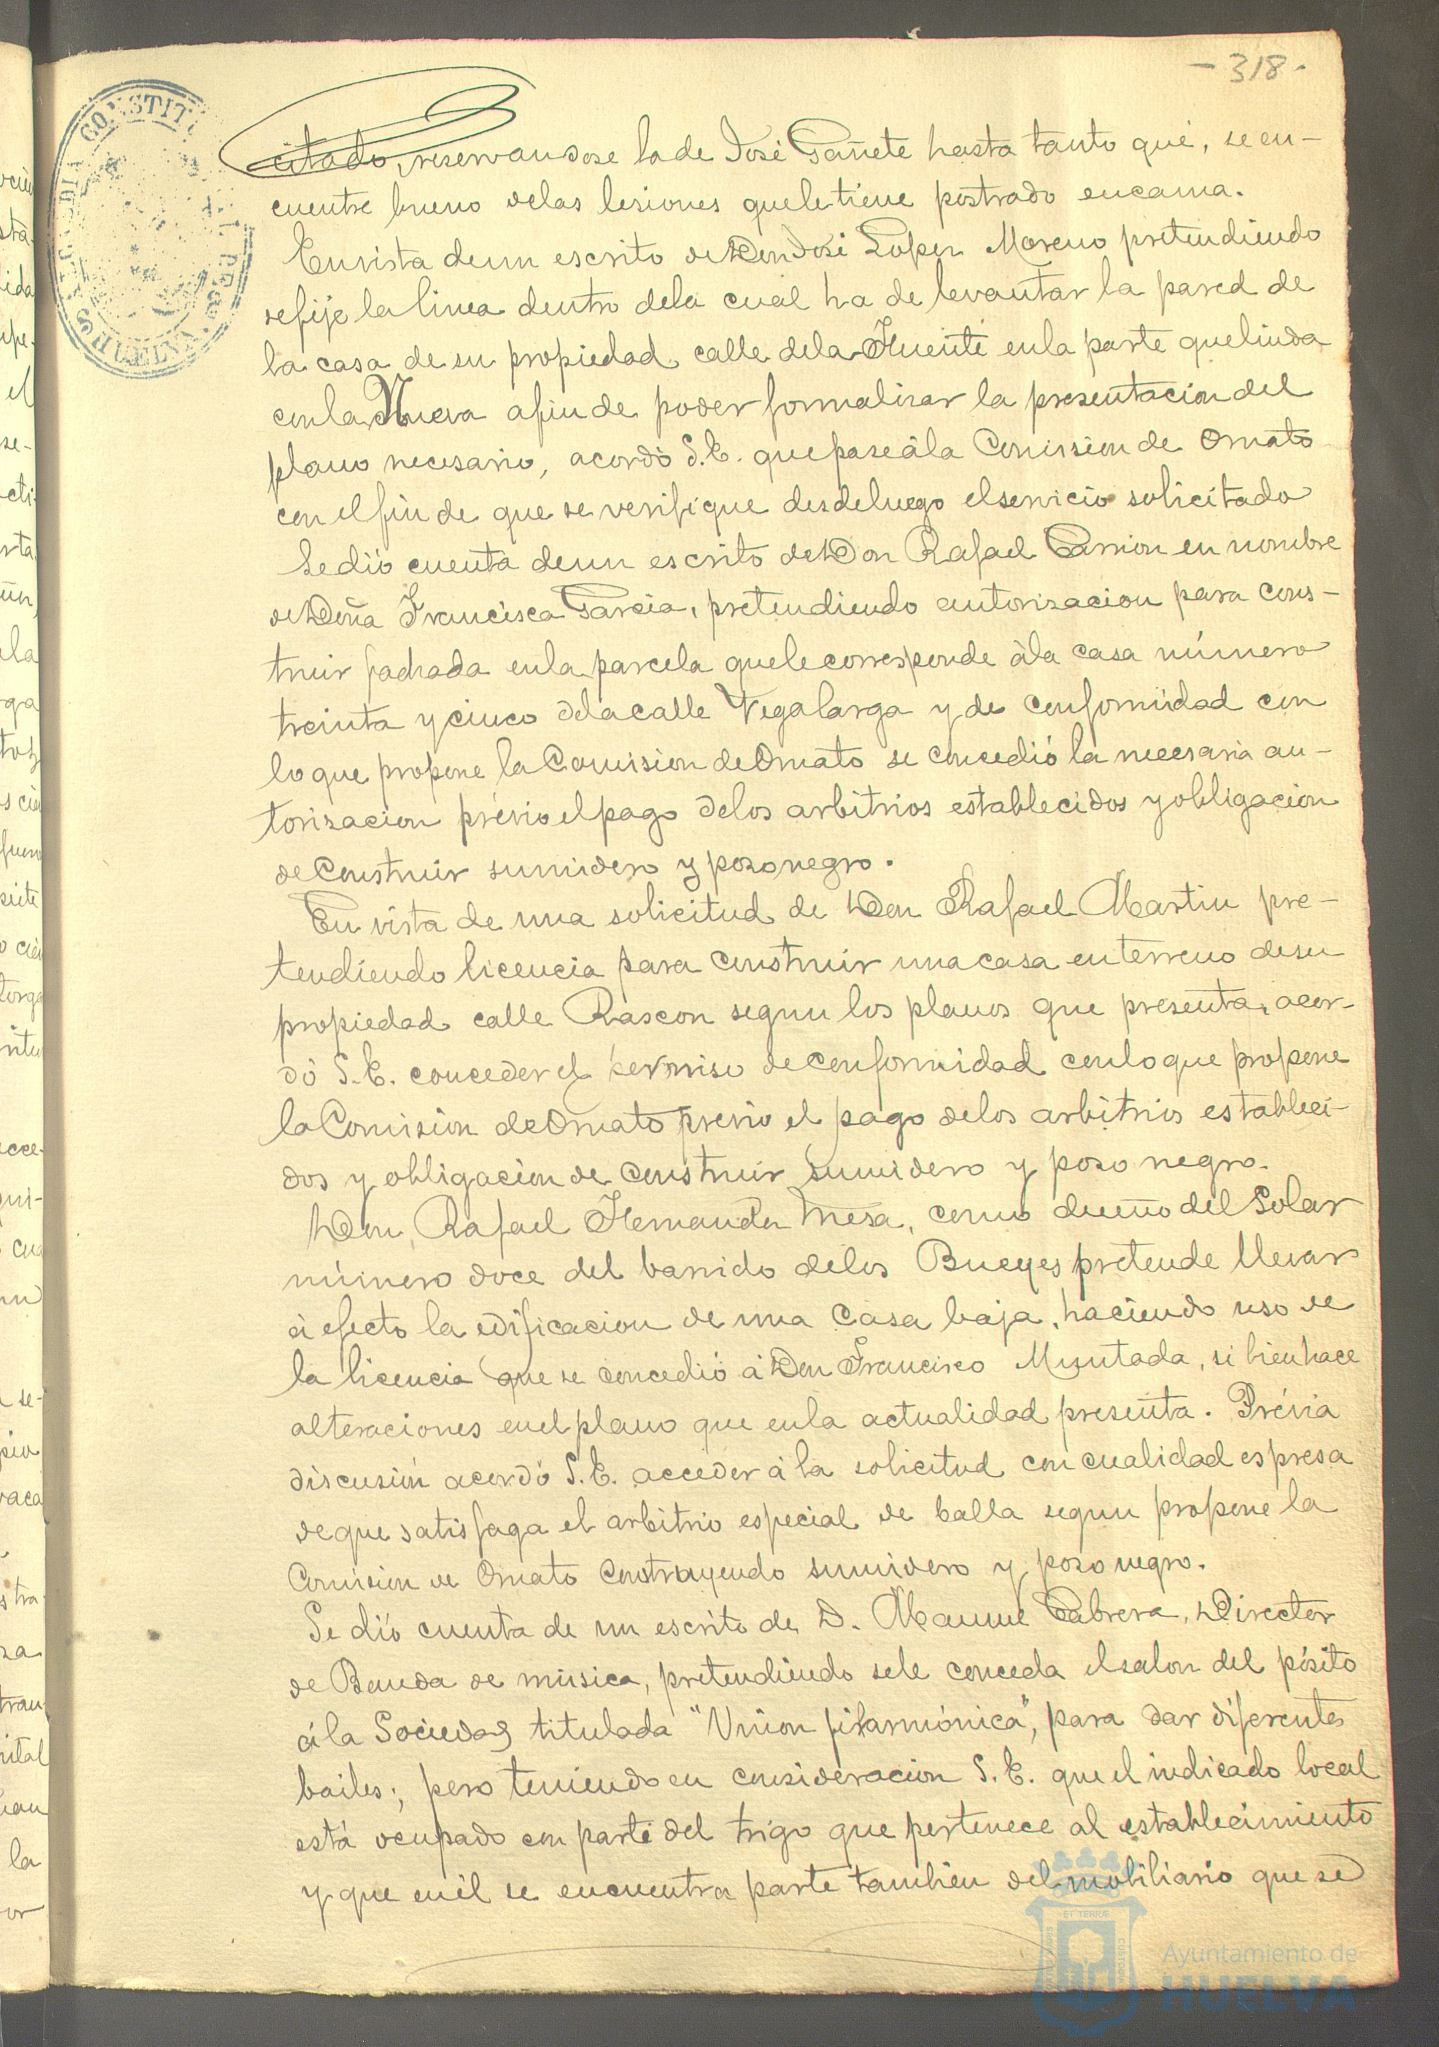 - 318 -
citado, reservandose la de José Gañete hasta tanto que, se en-
cuentre bueno de las lesiones que le tiene postrado en cama.
En vista de un escrito de Don José Lopez Moreno pretendiendo
se fije la linea dentro de la cual ha de levantar la pared de
la casa de su propiedad calle de la Fuente en la parte que linda
con la Nueva a fin de poder formalizar la presentacion del
plano necesario, acordó S.E. que pase á la Comision de Ornato
con el fin de que se verifique desde luego el servicio solicitado
Se dió cuenta de un escrito de Don Rafael Carrion en nombre
de Doña Francisca Garcia, pretendiendo autorizacion para cons-
truir fachada en la parcela que le corresponde á la casa número
treinta y cinco de la calle Vega larga y de conformidad con
lo que propone la Comision de Ornato se concedió la necesaria au-
torizacion prévio el pago de los arbitrios establecidos y obligacion
de construir sumidero y pozo negro.
En vista de una solicitud de Don Rafael Martin pre-
tendiendo licencia para construir una casa en terreno de su
propiedad calle Rascon segun los planos que presenta, acor-
dó S.E. conceder el permiso de conformidad con lo que propone
la Comision de Ornato prévio el pago de los arbitrios estableci-
dos y obligacion de construir sumidero y pozo negro.
Don Rafael Hernandez Mesa, como dueño del Solar
número doce del barrido de los Bueyes pretende llevar
á efecto la edificacion de una Casa baja, haciendo uso de
la licencia que se concedió á Don Francisco Muntada, si bien hace
alteraciones en el plano que en la actualidad presenta. Prévia
discusión acordó S.E. acceder á la solicitud con cualidad espresa
de que satisfaga el arbitrio especial de balla segun propone la
Comision de Ornato construyendo sumidero y pozo negro.
Se dió cuenta de un escrito de D. Manuel Cabrera, Director
de Banda de música, pretendiendo se le conceda el salon del pósito
á la Sociedad titulada "Union filarmónica", para dar diferentes
bailes; pero teniendo en consideracion S.E. que el indicado local
está ocupado con parte del trigo que pertenece al establecimiento
y que en él se encuentra parte tambien del mobiliario que se
Ayuntamiento de
HUELVA